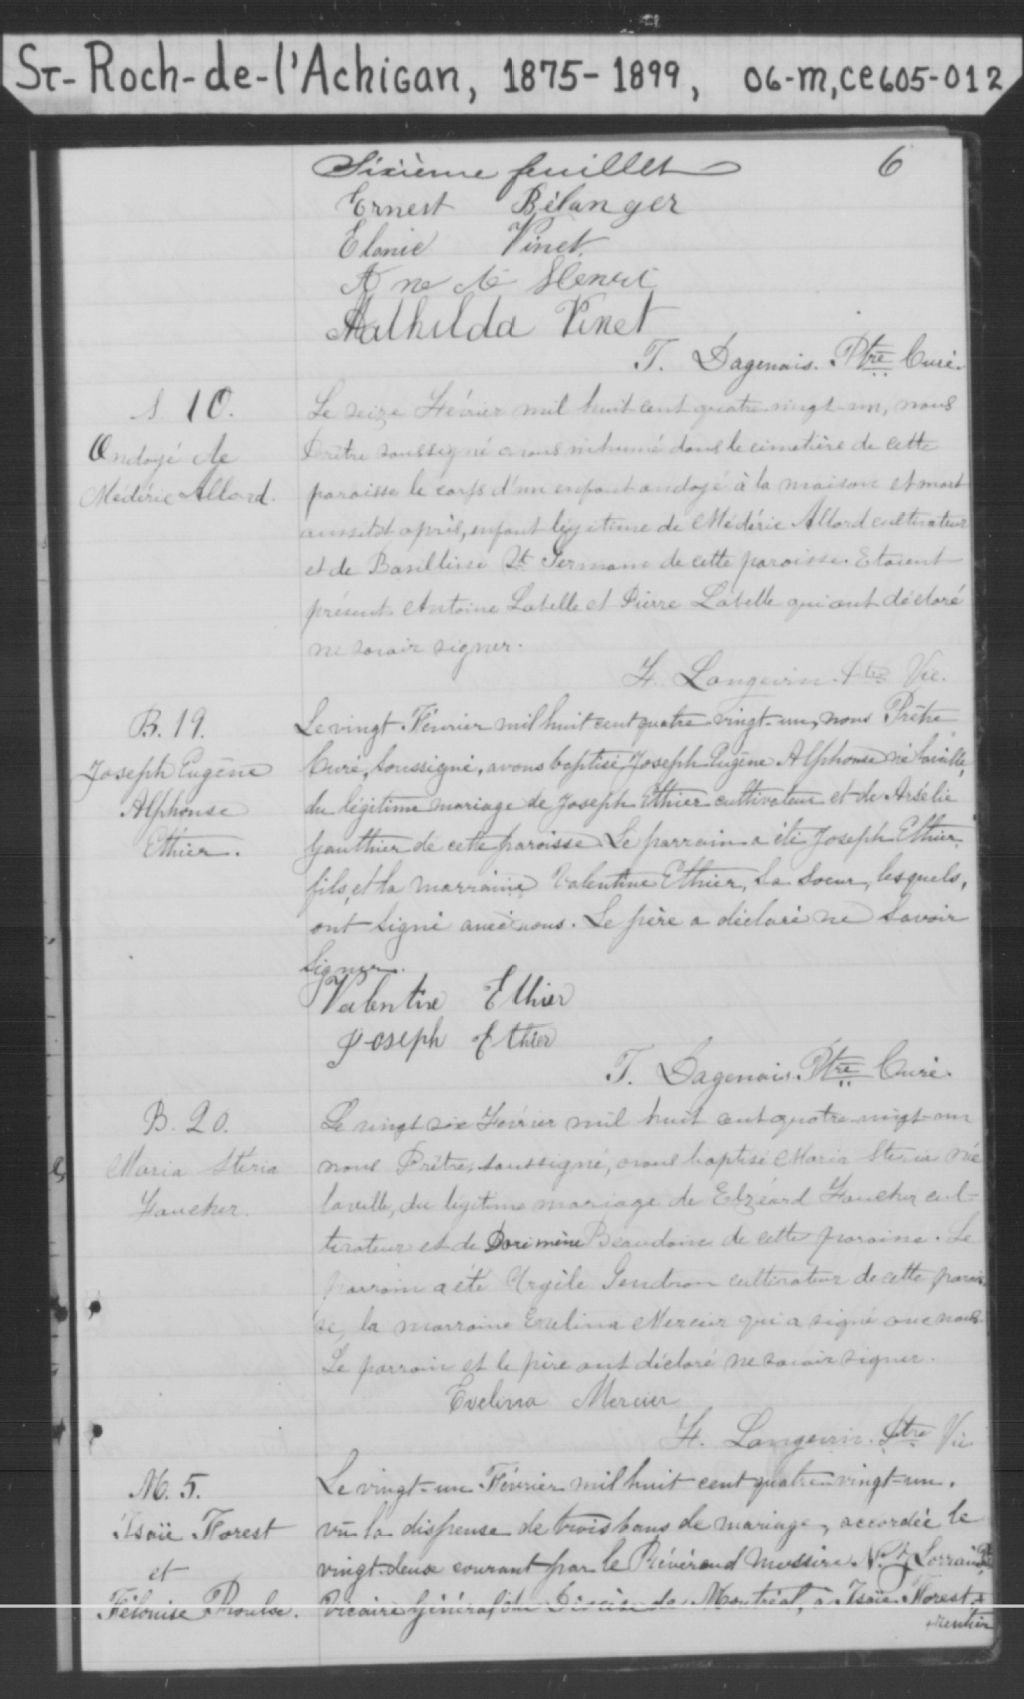 St-Roch-de-l'Achigan, 1875-1899, 06-M,CE605-012
Sixième feuillet 6
Ernest Bélanger
Elonie Vinet
Mathilda Vinet
T. Dagenais. Ptre Curé.
S. 10.
Ondoyé de
Médéric Allard.
Le seize Février mil huit cent quatre-vingt-un, nous
Prêtre soussigné avons inhumé dans le cimetière de cette
paroisse le corps d'un enfant ondoyé à la maison et mort
aussitôt après, enfant légitime de Médéric Allard cultivateur
et de Basilisse St Germain de cette paroisse. Etaient
présents Antoine Labelle et Pierre Labelle qui ont déclaré
ne savoir signer.
F. Langevin Ptre Vic.
B. 19.
Joseph Eugène
Alphonse
Ethier.
Le vingt Février mil huit cent quatre-vingt-un, nous Prêtre
Curé, Soussigné, avons baptisé Joseph Eugène Alphonse né la veille,
du légitime mariage de Joseph Ethier cultivateur et de Arsélie
Gauthier de cette paroisse. Le parrain a été Joseph Ethier,
fils, et la marraine Valentine Ethier, Sa Soeur, lesquels,
ont Signé avec nous. Le père a déclaré ne Savoir
Signer.
Valentine Ethier
Joseph Ethier
T. Dagenais. Ptre Curé.
B. 20.
Maria Stéria
Faucher.
Le vingt six Février mil huit cent quatre-vingt-un
nous Prêtre, soussigné, avons baptisé Maria Stéria née
la veille, du légitime mariage de Elzéard Faucher cul-
tivateur et de Dorimène Beaudoin de cette paroisse. Le
parrain a été Urgèle Gendron cultivateur de cette parois
se, la marraine Evelina Mercier qui a signé avec nous.
Le parrain et le père ont déclaré ne savoir signer.
Evelina Mercier
F. Langevin. Ptre Vic
M. 5.
Isaïe Forest
et
Félonise Proulx.
Le vingt-un Février mil huit cent quatre-vingt-un.
vu la dispense de trois bans de mariage, accordée le
vingt-deux courant par le Révérend Messire Lorrain
Vicaire Général du Diocèse de Montréal, à Isaïe Forest
rentier